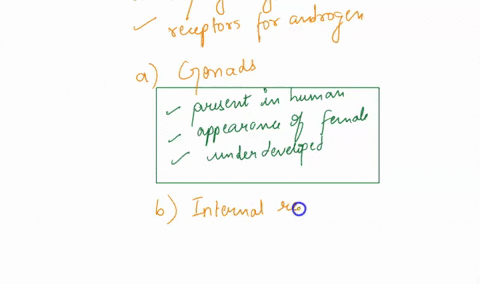 ✓ receptors for androgen
a) Gonads
✓ present in human
✓ appearance of female
✓ underdeveloped
b) Internal re